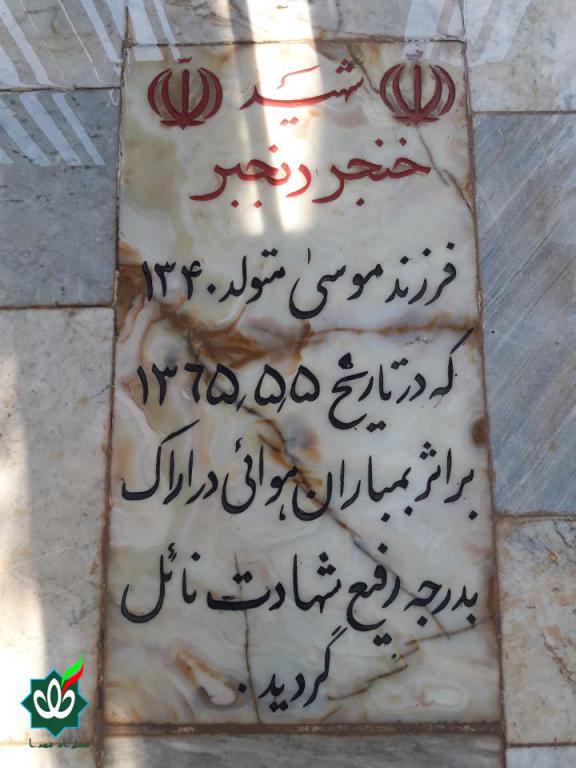 شهید
خنجر رنجبر
فرزند موسیٰ متولد ۱۳۴۰
که در تاریخ ۱۳۶۵٫۵٫۵
بر اثر بمباران هوائی در اراک
بدرجه رفیع شهادت نائل
گردید.